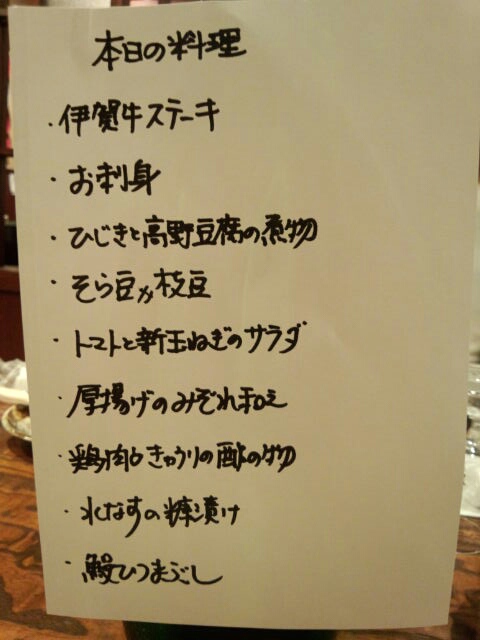 本日の料理
・伊賀牛ステーキ
・お刺身
・ひじきと高野豆腐の煮物
・そら豆 枝豆
・トマトと新玉ねぎのサラダ
・厚揚げのみぞれ和え
・鶏肉ときゅうりの酢の物
・水なすの糠漬け
・鰻ひつまぶし